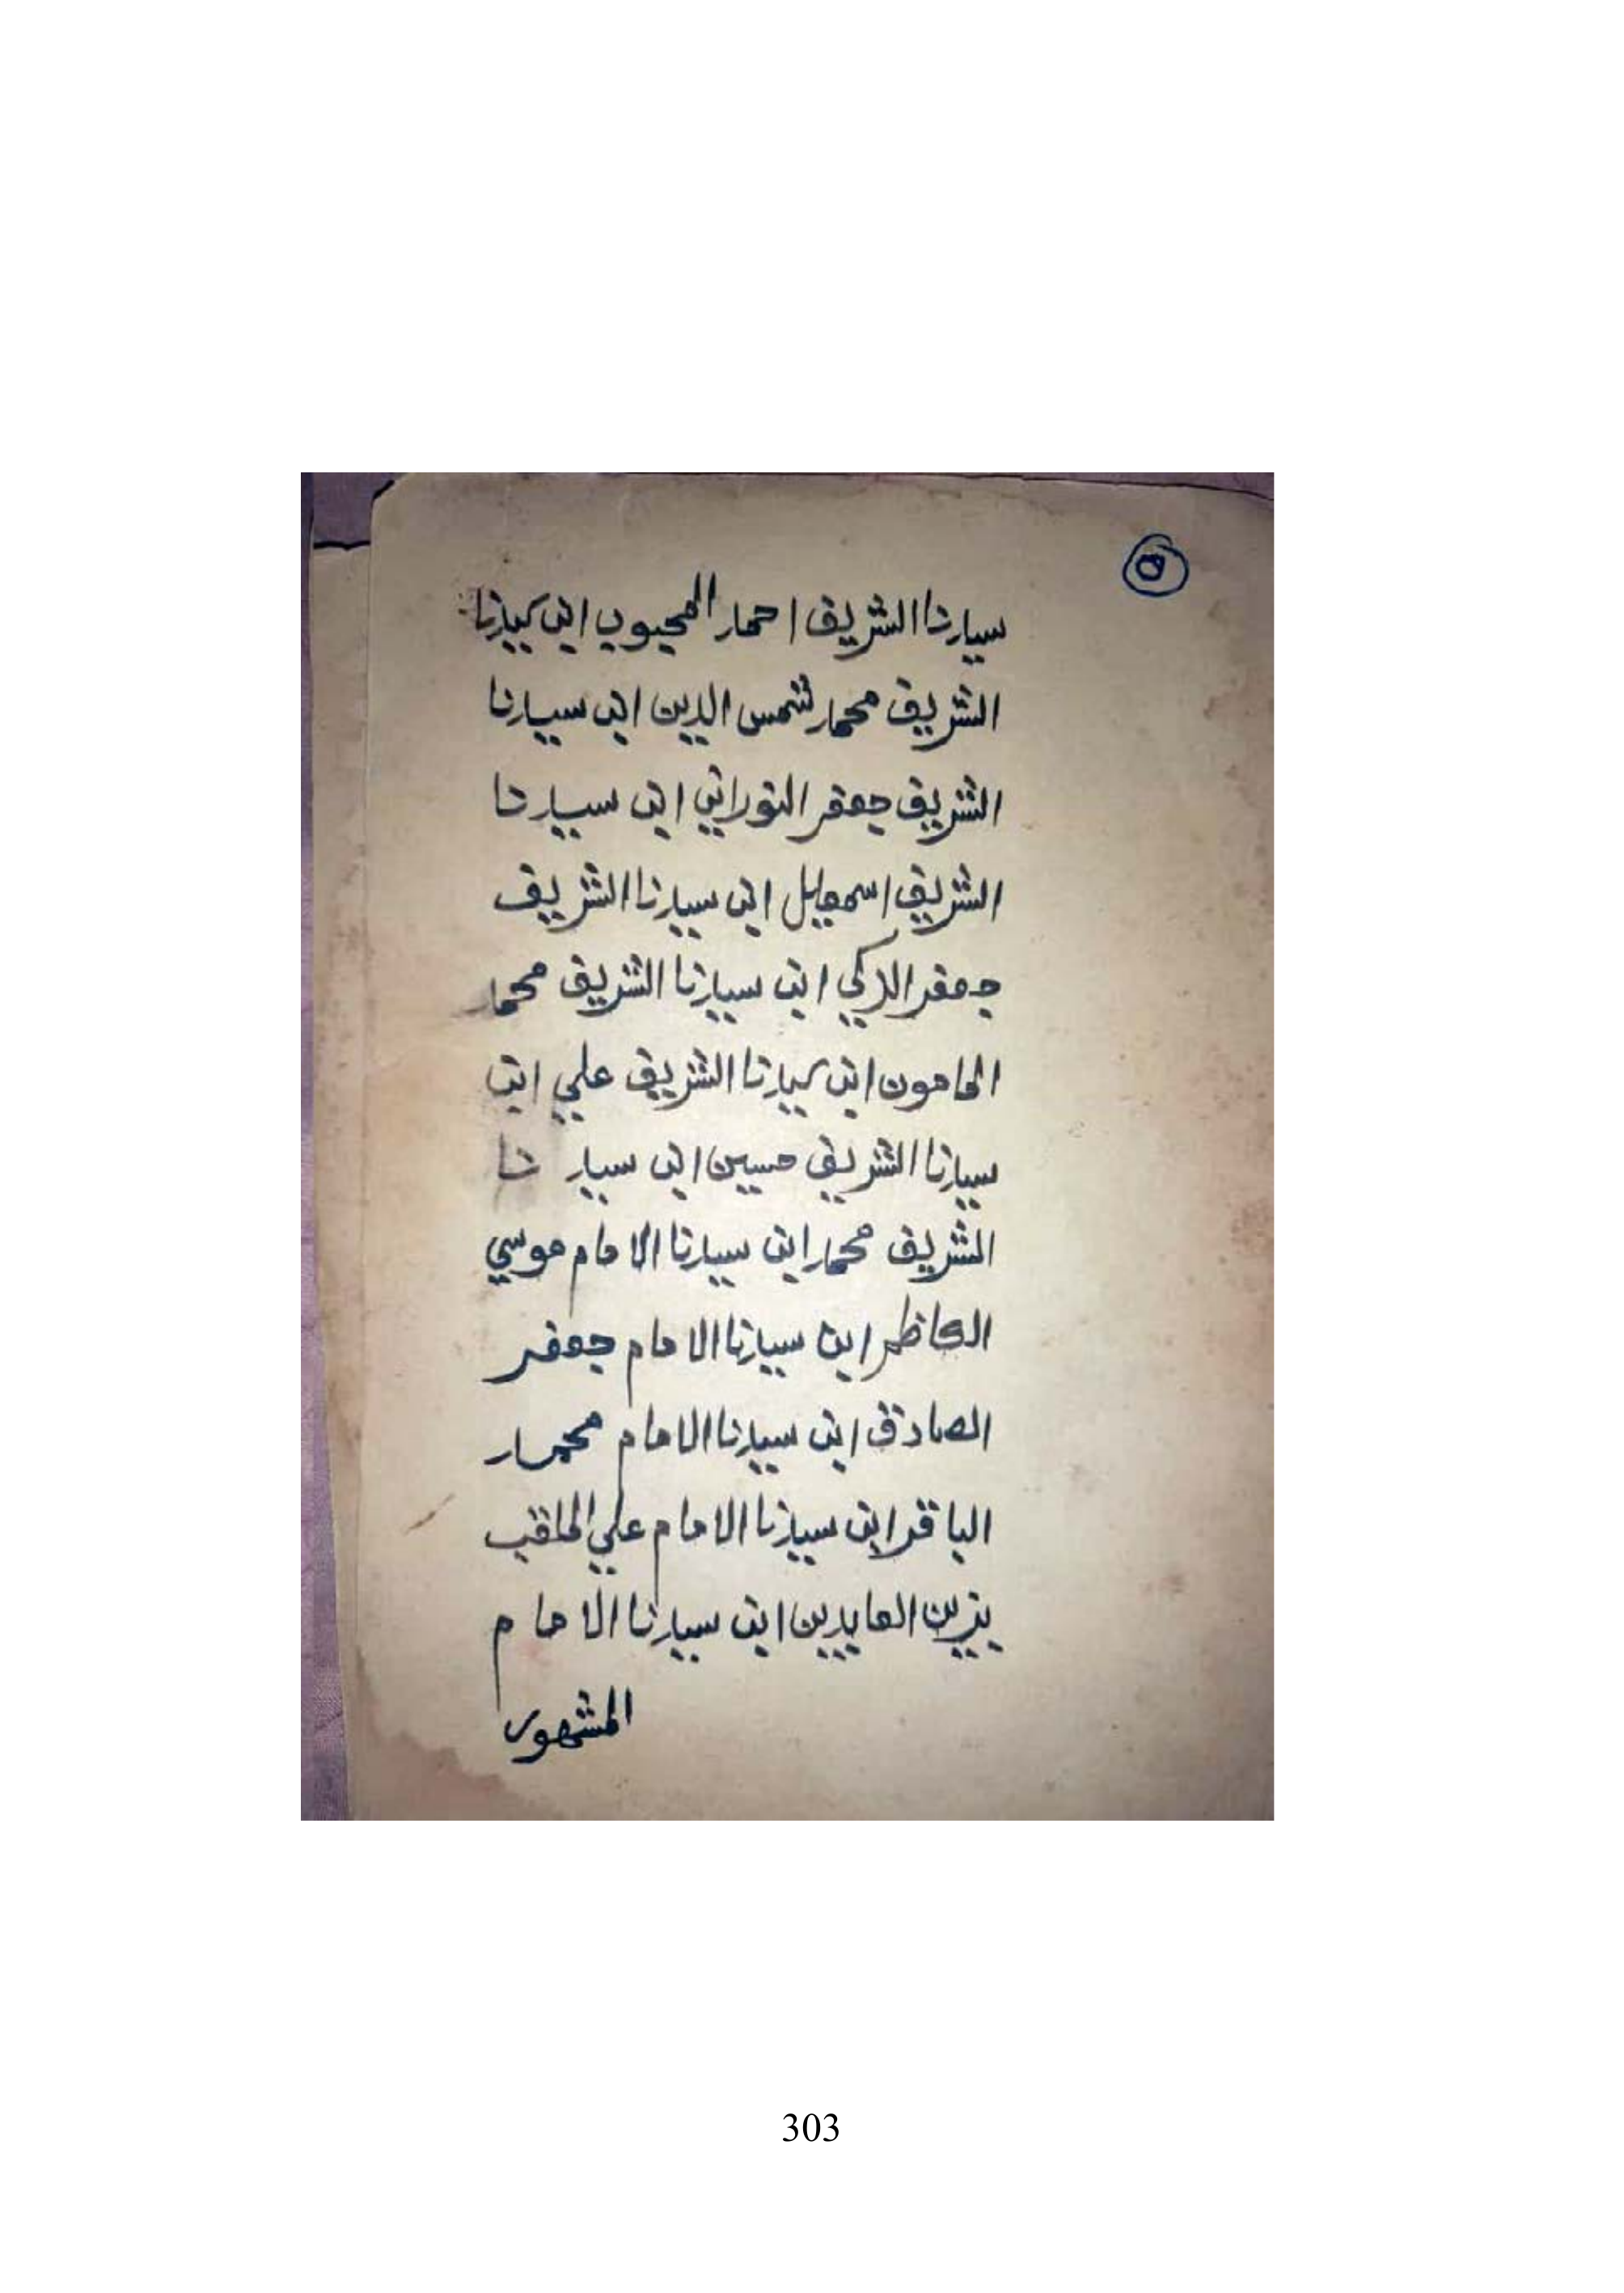 ٥
سيدنا الشريف احمد المحبوب ابن سيدنا
الشريف محمد شمس الدين ابن سيدنا
الشريف جعفر النوراني ابن سيدنا
الشريف اسمعيل ابن سيدنا الشريف
جعفر الذكي ابن سيدنا الشريف محمد
المامون ابن سيدنا الشريف علي ابن
سيدنا الشريف حسين ابن سيدنا
الشريف محمد ابن سيدنا الامام موسي
الكاظم ابن سيدنا الامام جعفر
الصادق ابن سيدنا الامام محمد
الباقر ابن سيدنا الامام علي الملقب
بزين العابدين ابن سيدنا الامام
المشهور
303